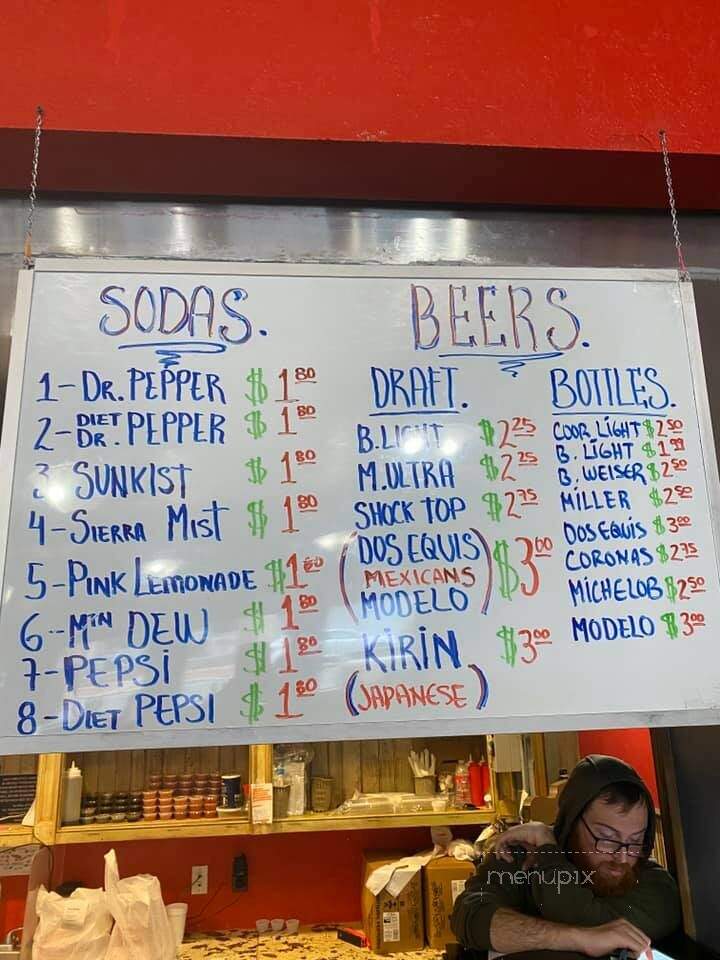 SODAS.
1-DR. PEPPER $1.80
2-DIET DR. PEPPER $1.80
3 SUNKIST $1.80
4-SIERRA MIST $1.80
5-PINK LEMONADE $1.80
6-MTN DEW $1.80
7-PEPSI $1.80
8-DIET PEPSI $1.80
BEERS.
DRAFT.
B.LIGHT $2.25
M.ULTRA $2.25
SHOCK TOP $2.75
(DOS EQUIS
MEXICANS
MODELO) $3.00
KIRIN $3.00
(JAPANESE)
BOTTLES.
COOR LIGHT $2.50
B. LIGHT $1.99
B. WEISER $2.50
MILLER $2.50
DOS EQUIS $3.00
CORONAS $2.75
MICHELOB $2.50
MODELO $3.00
menupix